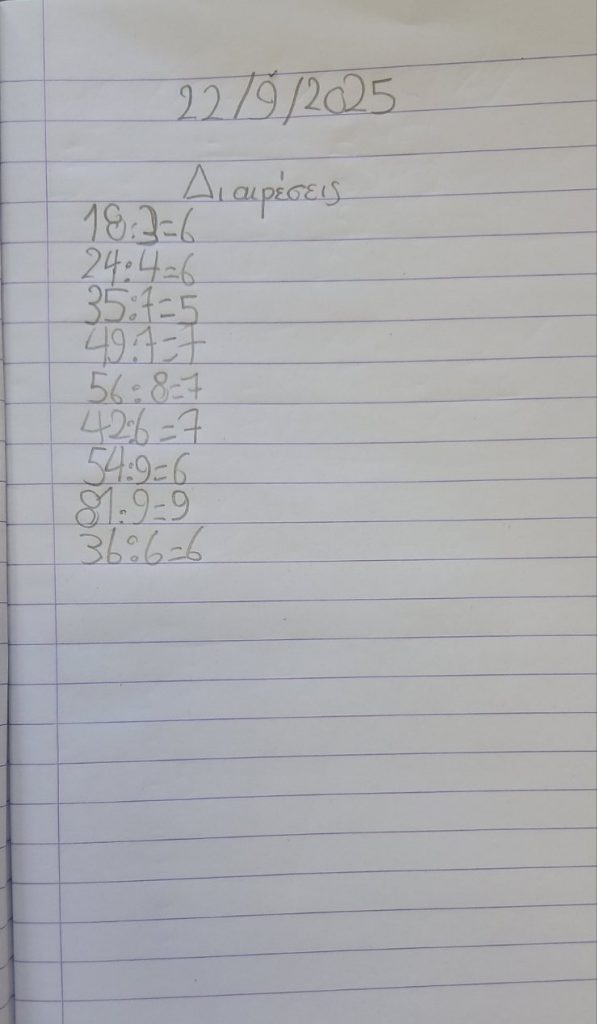 22/9/2025
Διαιρέσεις
18:3=6
24:4=6
35:7=5
49:7=7
56:8=7
42:6=7
54:9=6
81:9=9
36:6=6